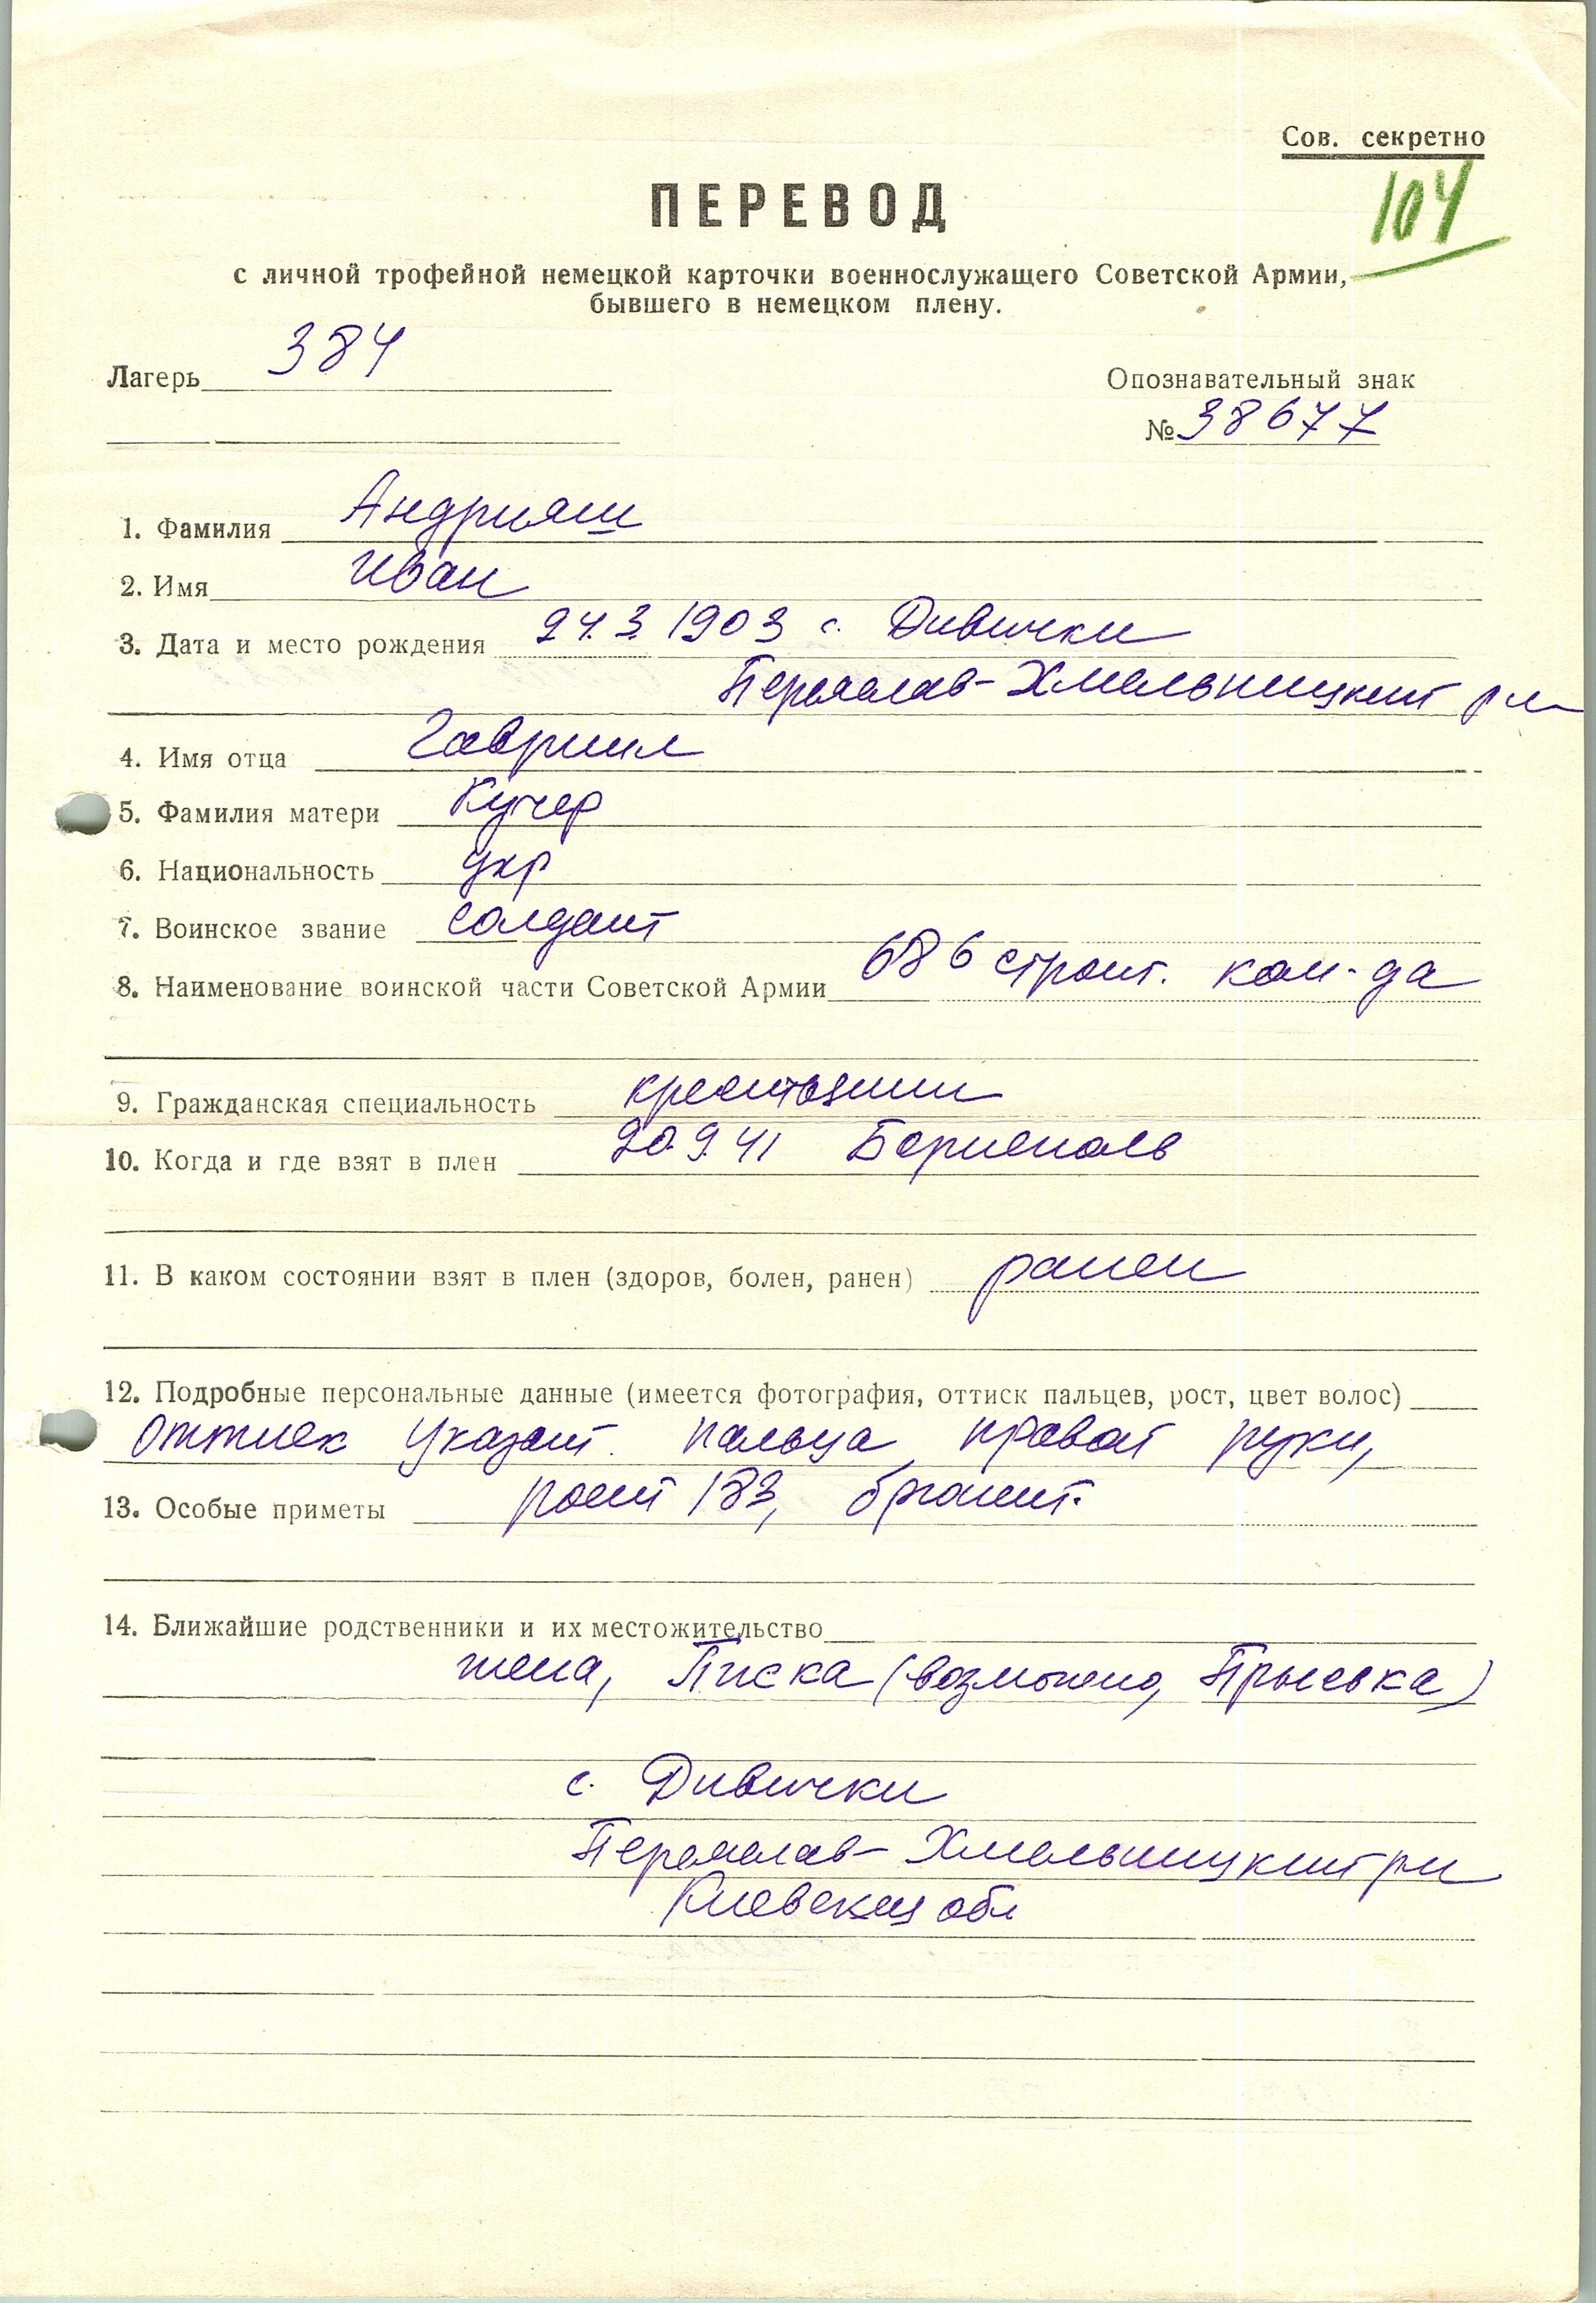 Сов. секретно
104
ПЕРЕВОД
с личной трофейной немецкой карточки военнослужащего Советской Армии,
бывшего в немецком плену.
Лагерь 384
Опознавательный знак
№ 38677
1. Фамилия Андрияш
2. Имя Иван
3. Дата и место рождения 24.3.1903 с. Дивички
Переяслав-Хмельницкий р-н
4. Имя отца Гавриил
5. Фамилия матери Кучер
6. Национальность укр
7. Воинское звание солдат
8. Наименование воинской части Советской Армии 686 строит. ком-да
9. Гражданская специальность крестьянин
10. Когда и где взят в плен 20.9.41 Борисполь
11. В каком состоянии взят в плен (здоров, болен, ранен) ранен
12. Подробные персональные данные (имеется фотография, оттиск пальцев, рост, цвет волос)
Оттиск указат. пальца правой руки,
13. Особые приметы рост 183, брюнет.
14. Ближайшие родственники и их местожительство
жена, Писка (возможно, Прысвка)
с. Дивички
Переяслав-Хмельницкий р-н
Киевской обл